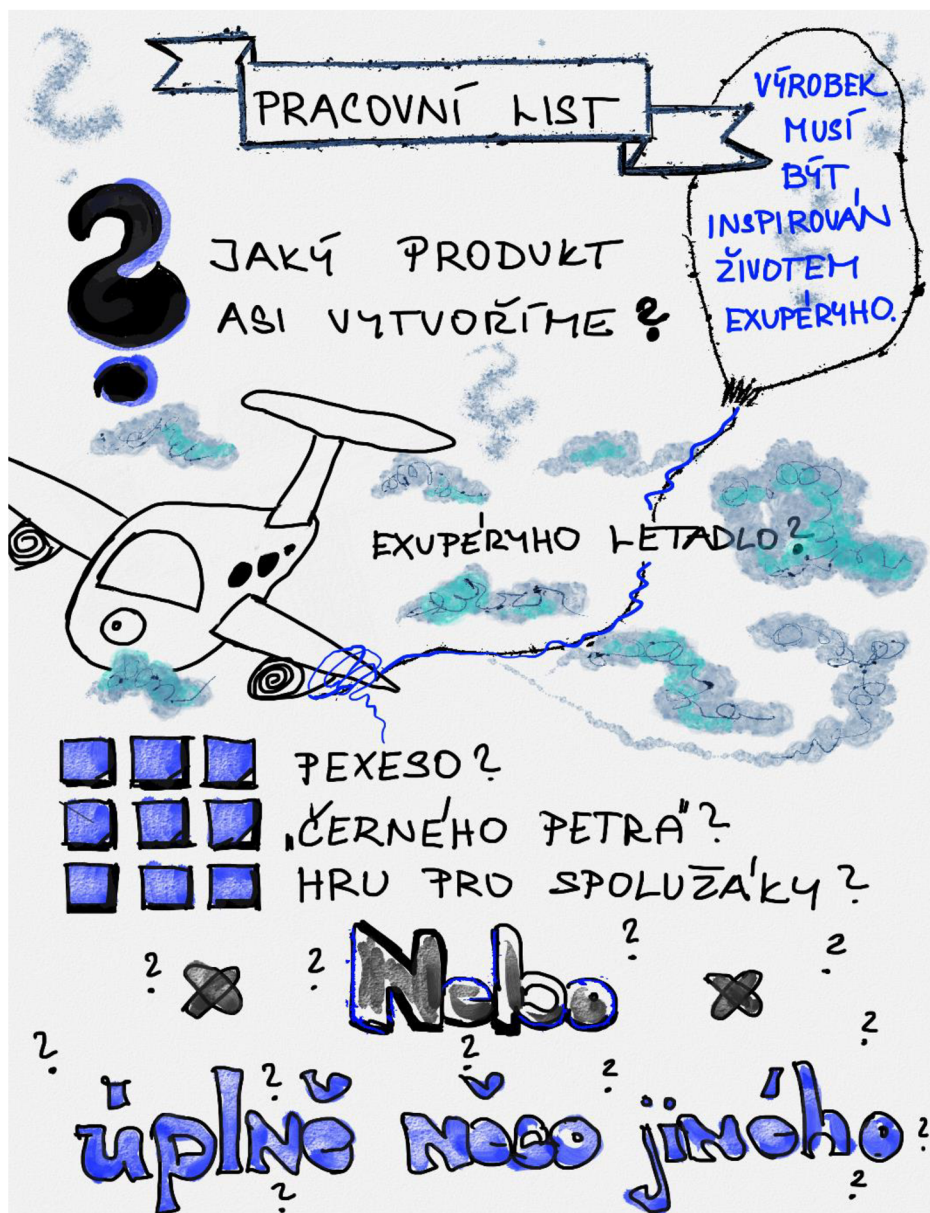 PRACOVNÍ LIST
VÝROBEK
MUSÍ
BÝT
INSPIROVÁN
ŽIVOTEM
EXUPÉRYHO.
JAKÝ PRODUKT
ASI VYTVOŘÍME?
EXUPÉRYHO LETADLO?
PEXESO?
„ČERNÉHO PETRA"?
HRU PRO SPOLUŽÁKY?
Nebo
úplně něco jiného?